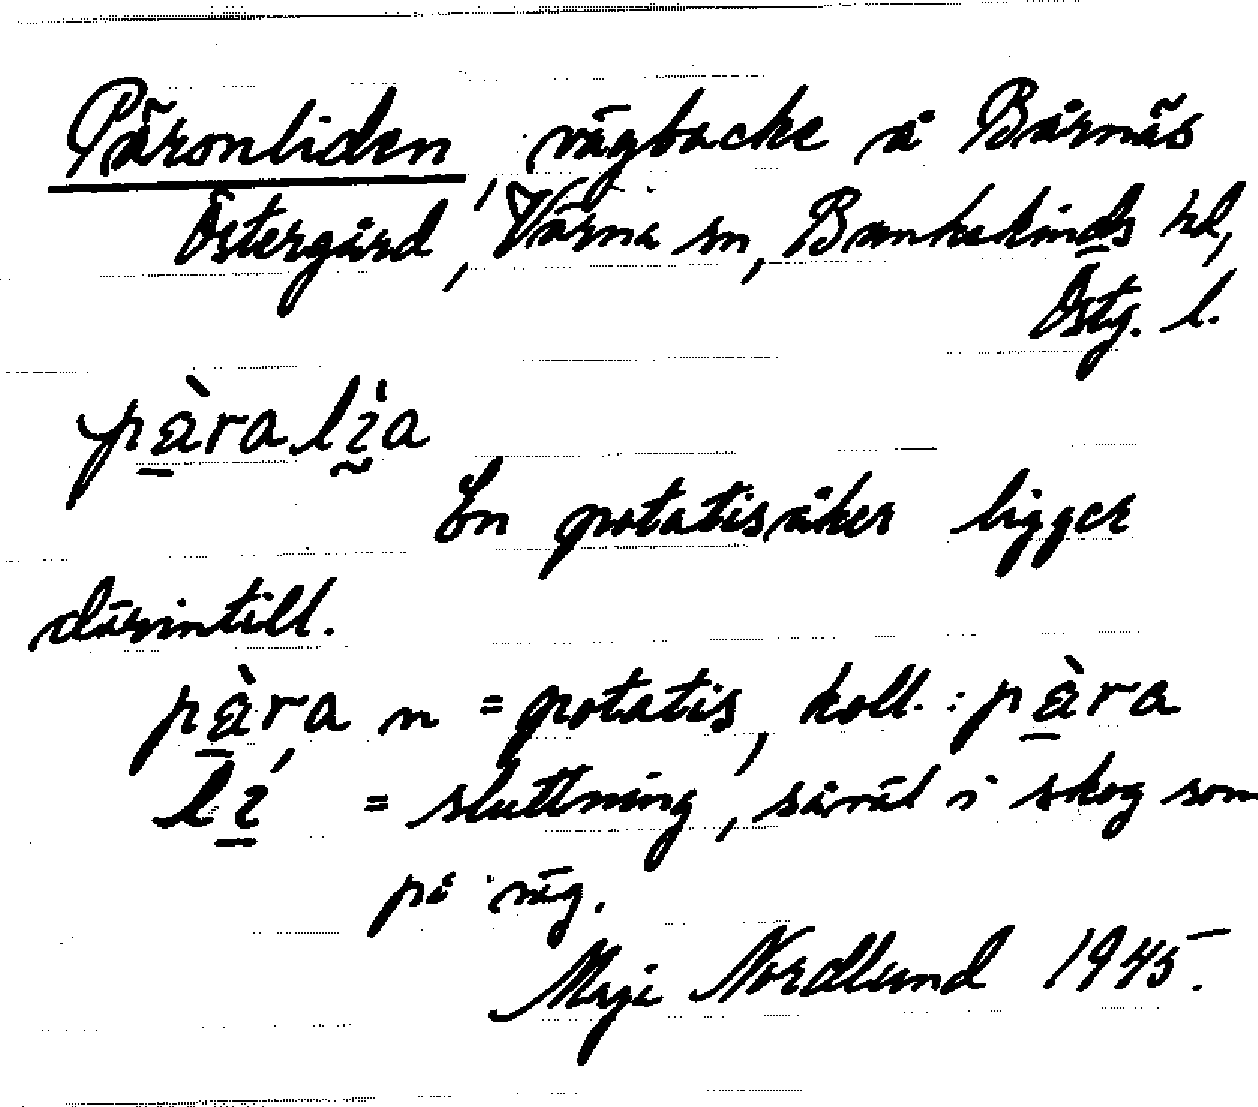 Päronliden, vägbacke å Bårnäs
Östergård, Värna sn, Bankekinds hd,
Östg. l.
pàralia
En potatisåker ligger
därintill.
pàra n = potatis, koll. : pàra
lí = sluttning, såväl i skog som
på väg.
Maja Nordlund 1945.